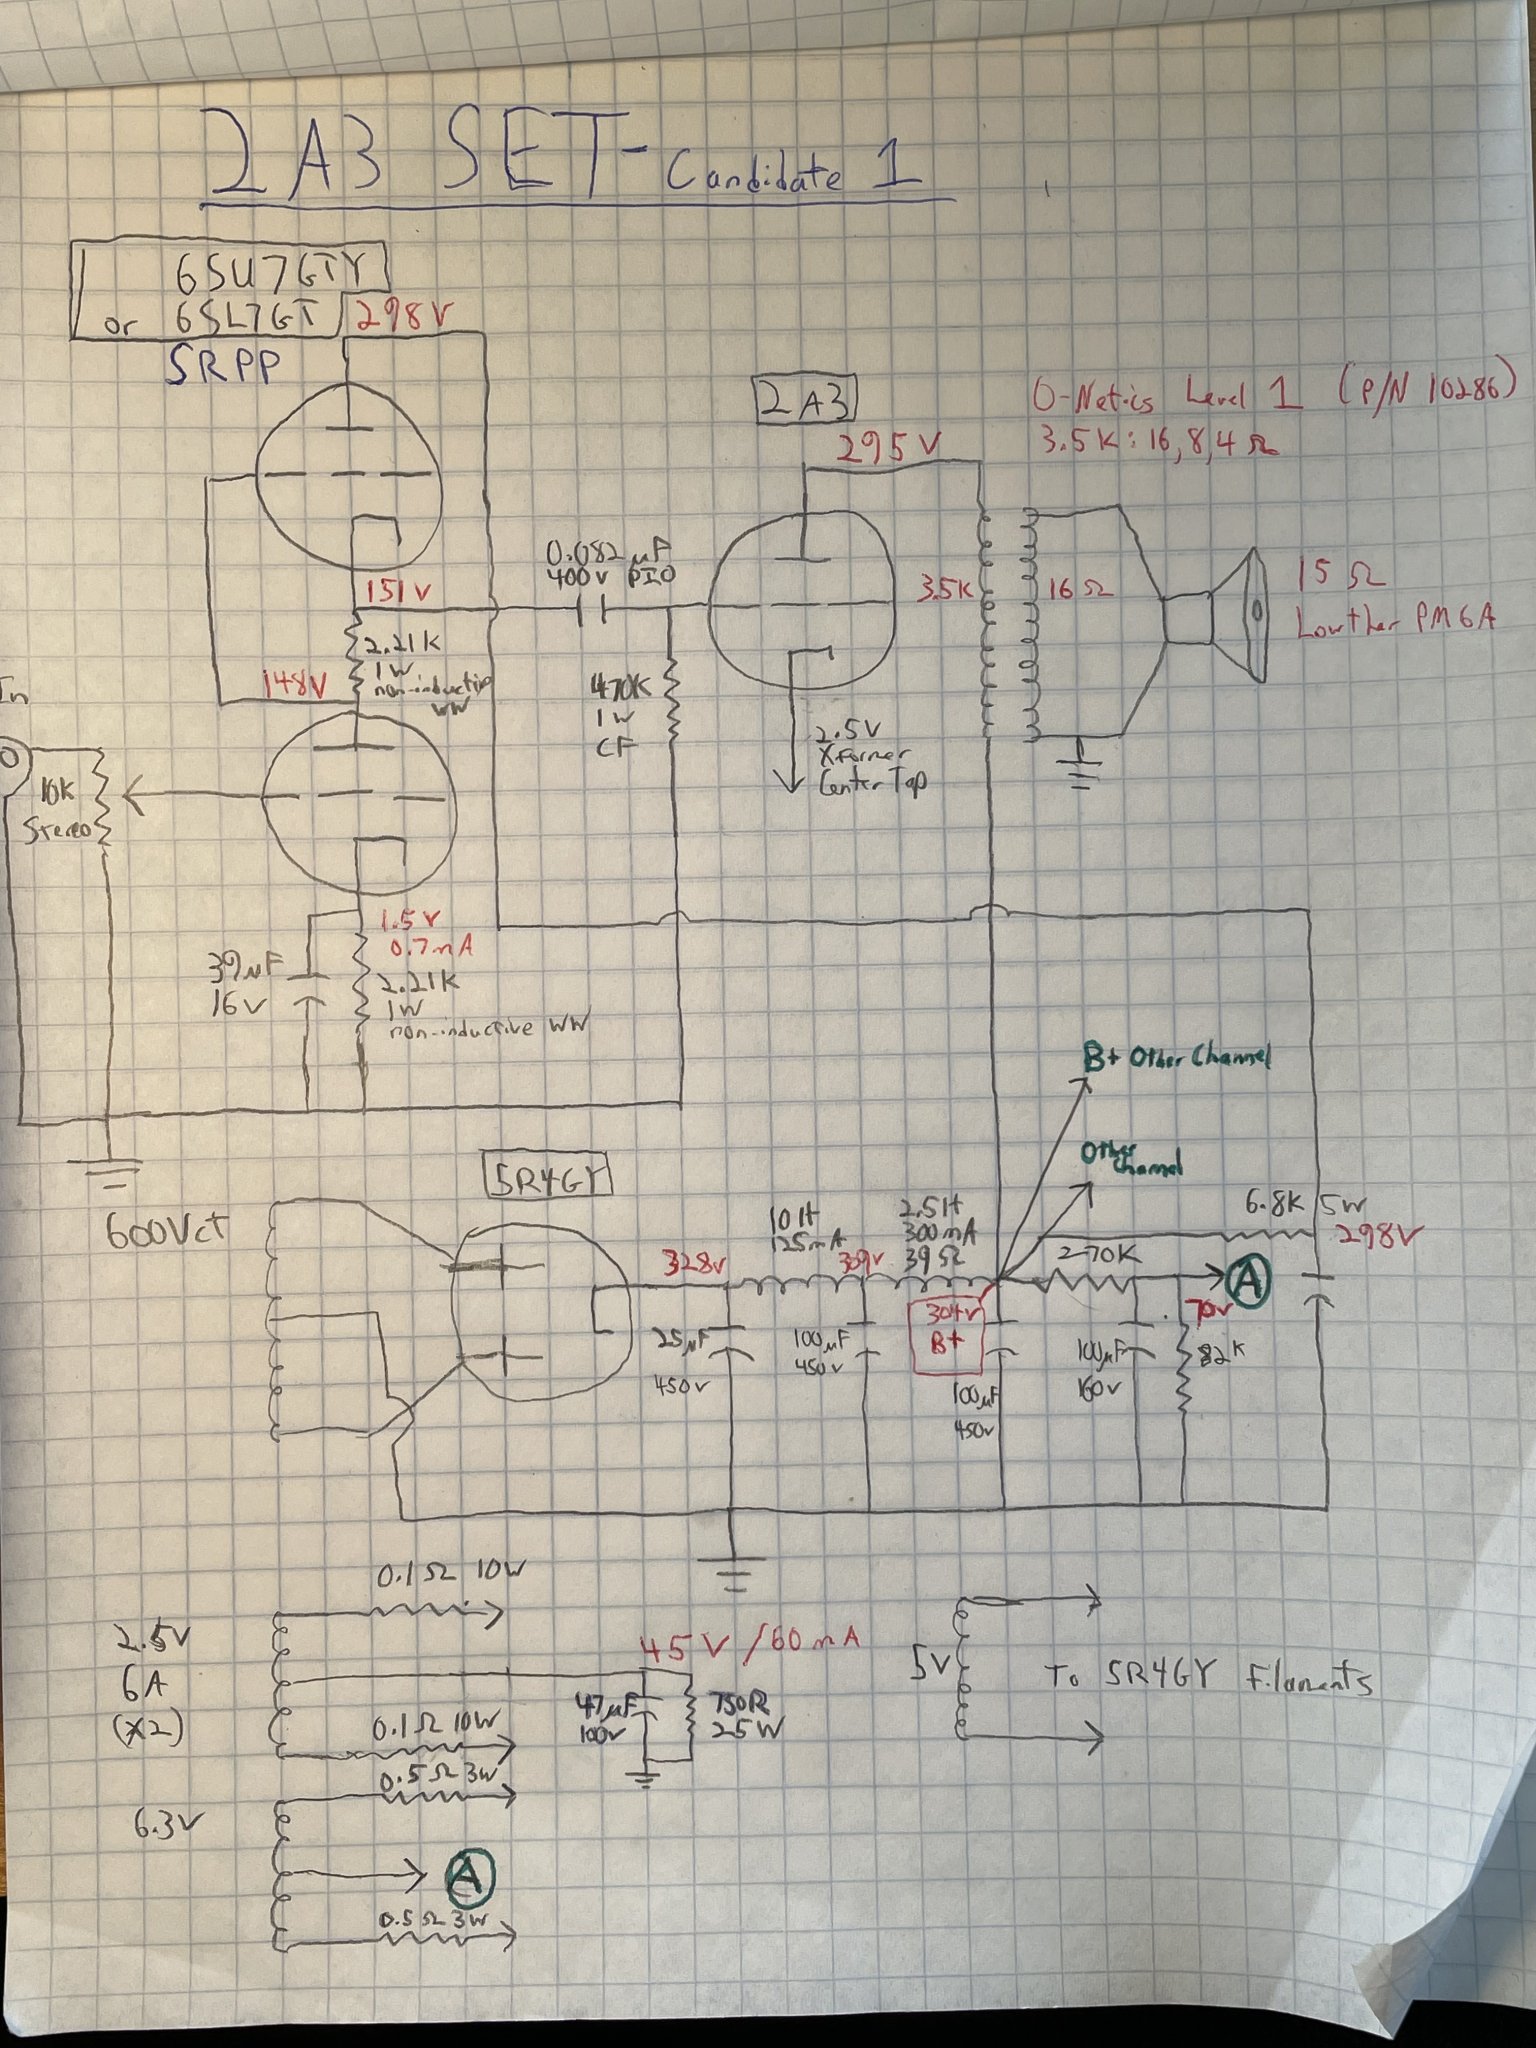 2A3 SET - Candidate 1
6SU7GTY
or 6SL7GT
298V
SRPP
2A3
295V
O-Netics Level 1 (P/N 10286)
3.5K : 16, 8, 4 Ω
0.082 µF
400V PIO
151V
2.21K
1W
non-inductive
WW
148V
470K
1W
CF
3.5K
16Ω
15 Ω
Lowther PM6A
2.5V
Xformer
Center Tap
In
10K
Stereo
1.5V
0.7mA
39µF
16V
2.21K
1W
non-inductive WW
B+ Other Channel
Other
Channel
5R4GY
600Vct
328V
10H
125mA
309V
2.5H
300mA
39Ω
6.8K 5W
298V
270K
A
70V
82K
304V
B+
25µF
450V
100µF
450V
100µF
450V
100µF
160V
0.1Ω 10W
2.5V
6A
(x2)
0.1Ω 10W
45V/60mA
47µF
100V
750R
25W
5V
To 5R4GY Filaments
0.5Ω 3W
6.3V
A
0.5Ω 3W